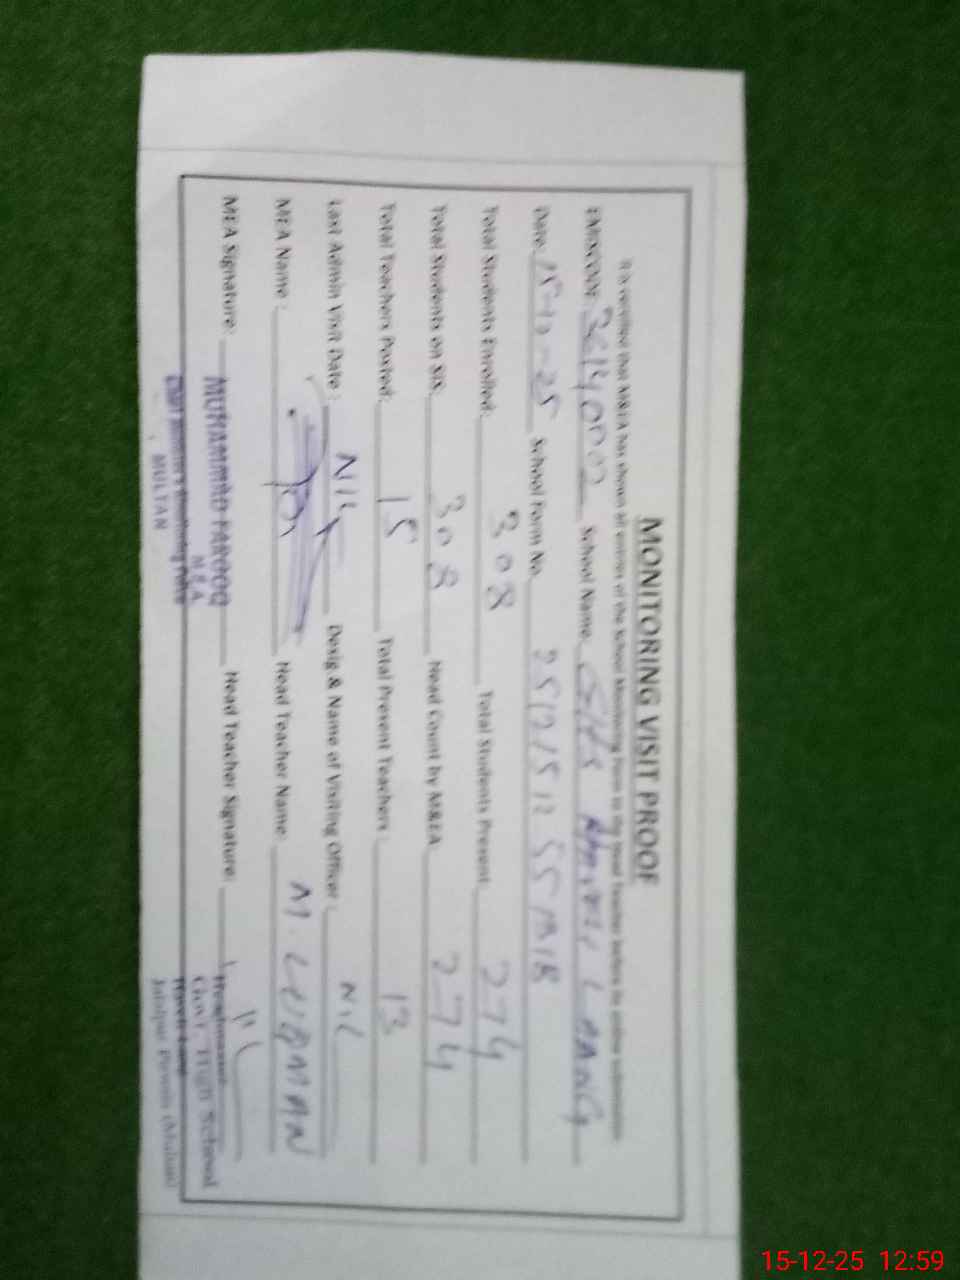 MONITORING VISIT PROOF
It is certified that M&EA has shown all entries of the School Monitoring Form to the Head Teacher before its online submission
EMISCODE 36140002 School Name GHS LAANG
Date 15-12-25 School Form No. 2512151255
Total Students Enrolled: 308 Total Students Present 274
Total Students on SIS: 308 Head Count by M&EA 274
Total Teachers Posted: 15 Total Present Teachers: 13
Last Admin Visit Date: NIL Desig & Name of Visiting Officer NIL
MEA Name: Head Teacher Name: M. LUQMAN
MEA Signature: MUHAMMAD FAROOQ Head Teacher Signature:
M.E.A
Chief Minister's Monitoring Force
MULTAN
Headmaster
Govt. High School
Jalalpur Pirwala (Multan)
15-12-25 12:59